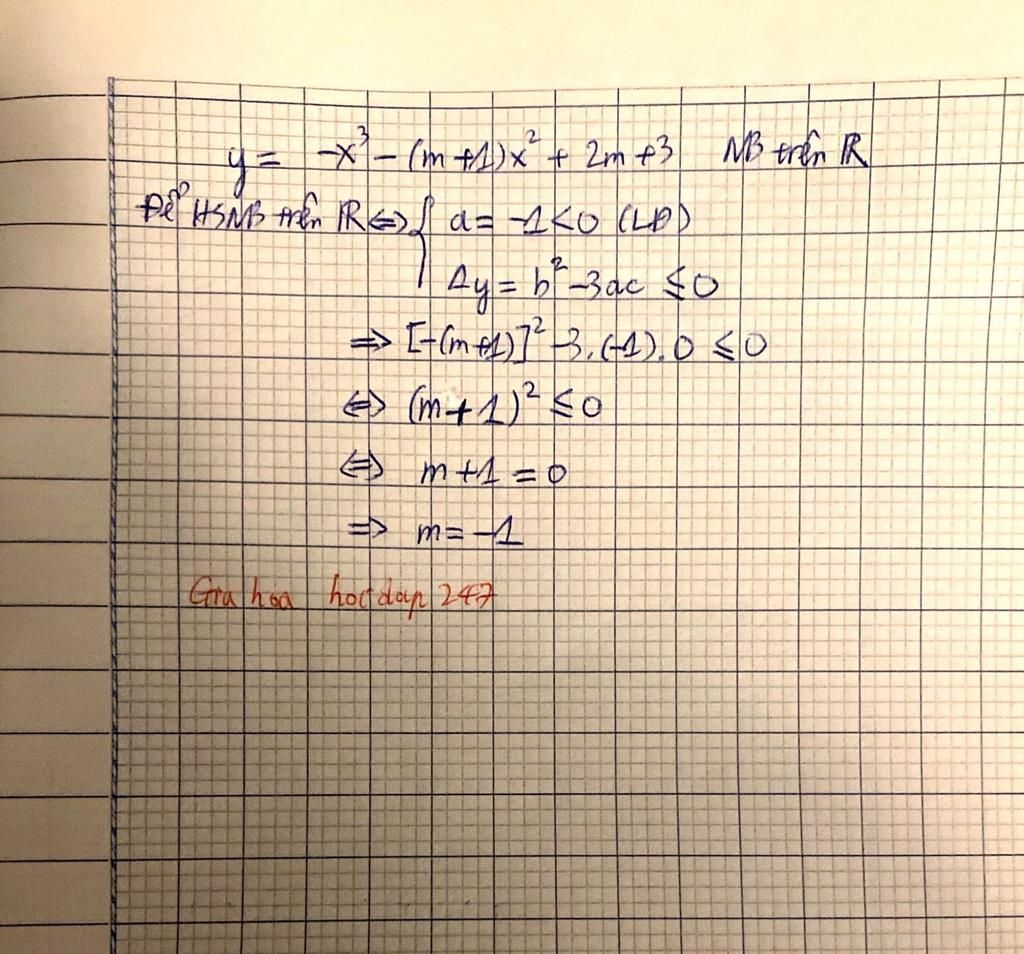 y = -x³ - (m+1)x² + 2m+3 NB trên ℝ
Để HSNB trên ℝ ⇔ { a = -1 < 0 (LĐ)
Δy = b² - 3ac ≤ 0
⇒ [-(m+1)]² - 3.(-1).0 ≤ 0
⇔ (m+1)² ≤ 0
⇔ m+1 = 0
⇒ m = -1
Gia hoa hocdap 247